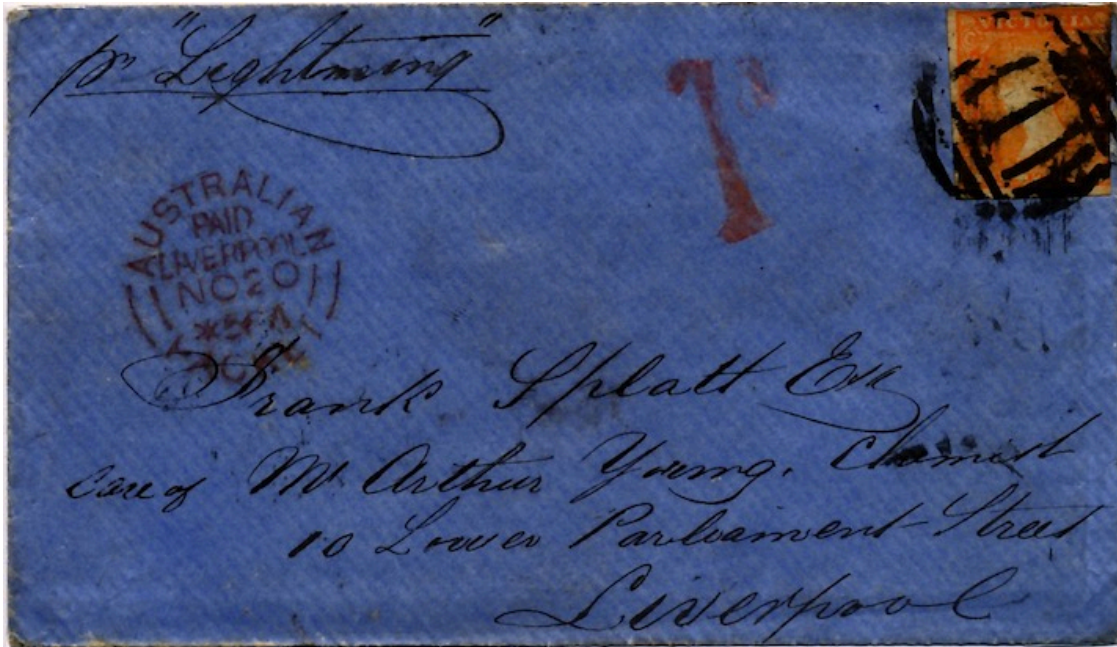 pr "Lightning"
VICTORIA
1d
AUSTRALIAN
PAID
LIVERPOOL
NO20
Frank Splatt Esq
care of Mr Arthur Young. Chemist
10 Lower Parliament Street
Liverpool